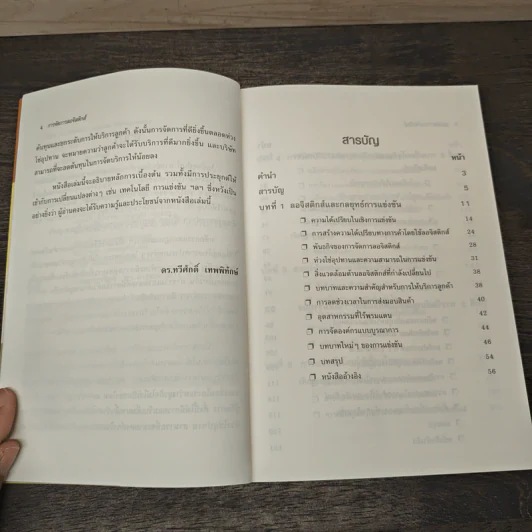 4 การจัดการลอจิสติกส์
ต้นทุนและยกระดับการให้บริการลูกค้า ดังนั้นการจัดการที่ดียิ่งขึ้นตลอดห่วง
โซ่อุปทาน จะหมายความว่าลูกค้าจะได้รับบริการที่ดีมากยิ่งขึ้น และบริษัท
สามารถที่จะลดต้นทุนในการจัดบริการให้น้อยลง
หนังสือเล่มนี้จะอธิบายหลักการเบื้องต้น รวมทั้งมีการประยุกต์ให้
เข้ากับการเปลี่ยนแปลงต่างๆ เช่น เทคโนโลยี การแข่งขัน ฯลฯ ซึ่งหวังเป็น
อย่างยิ่งว่า ผู้อ่านคงจะได้รับความรู้และประโยชน์จากหนังสือเล่มนี้
ดร.ทวีศักดิ์ เทพพิทักษ์
สารบัญ
หน้า
คำนำ 3
สารบัญ 5
บทที่ 1 ลอจิสติกส์และกลยุทธ์การแข่งขัน 11
❒ ความได้เปรียบในเชิงการแข่งขัน 14
❒ การสร้างความได้เปรียบทางการค้าโดยใช้ลอจิสติกส์ 24
❒ พันธกิจของการจัดการลอจิสติกส์ 28
❒ ห่วงโซ่อุปทานและความสามารถในการแข่งขัน 31
❒ สิ่งแวดล้อมด้านลอจิสติกส์ที่กำลังเปลี่ยนไป 38
❒ บทบาทและความสำคัญสำหรับการให้บริการลูกค้า 38
❒ การลดช่วงเวลาในการส่งมอบสินค้า 40
❒ อุตสาหกรรมที่ไร้พรมแดน 42
❒ การจัดองค์กรแบบบูรณาการ 44
❒ บทบาทใหม่ๆ ของการแข่งขัน 46
❒ บทสรุป 54
❒ หนังสืออ้างอิง 56